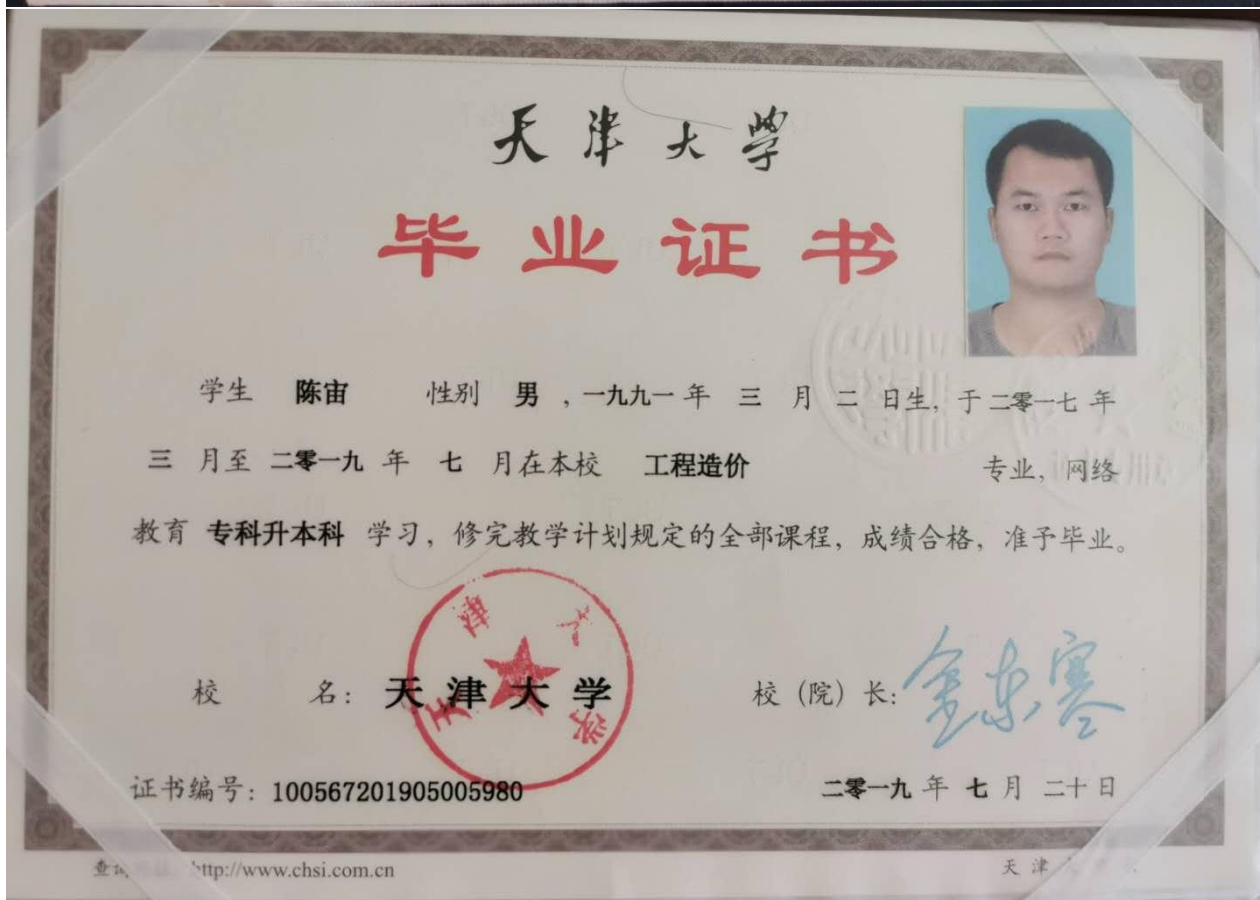 天津大学
毕业证书
学生 陈宙 性别 男 ,一九九一年 三 月 二 日生, 于二零一七 年
三 月至 二零一九 年 七 月在本校 工程造价 专业, 网络
教育 专科升本科 学习, 修完教学计划规定的全部课程, 成绩合格, 准予毕业。
校 名: 天津大学 校(院)长: 金东寒
天津大学
证书编号: 100567201905005980 二零一九 年 七 月 二十 日
查询 http://www.chsi.com.cn 天津